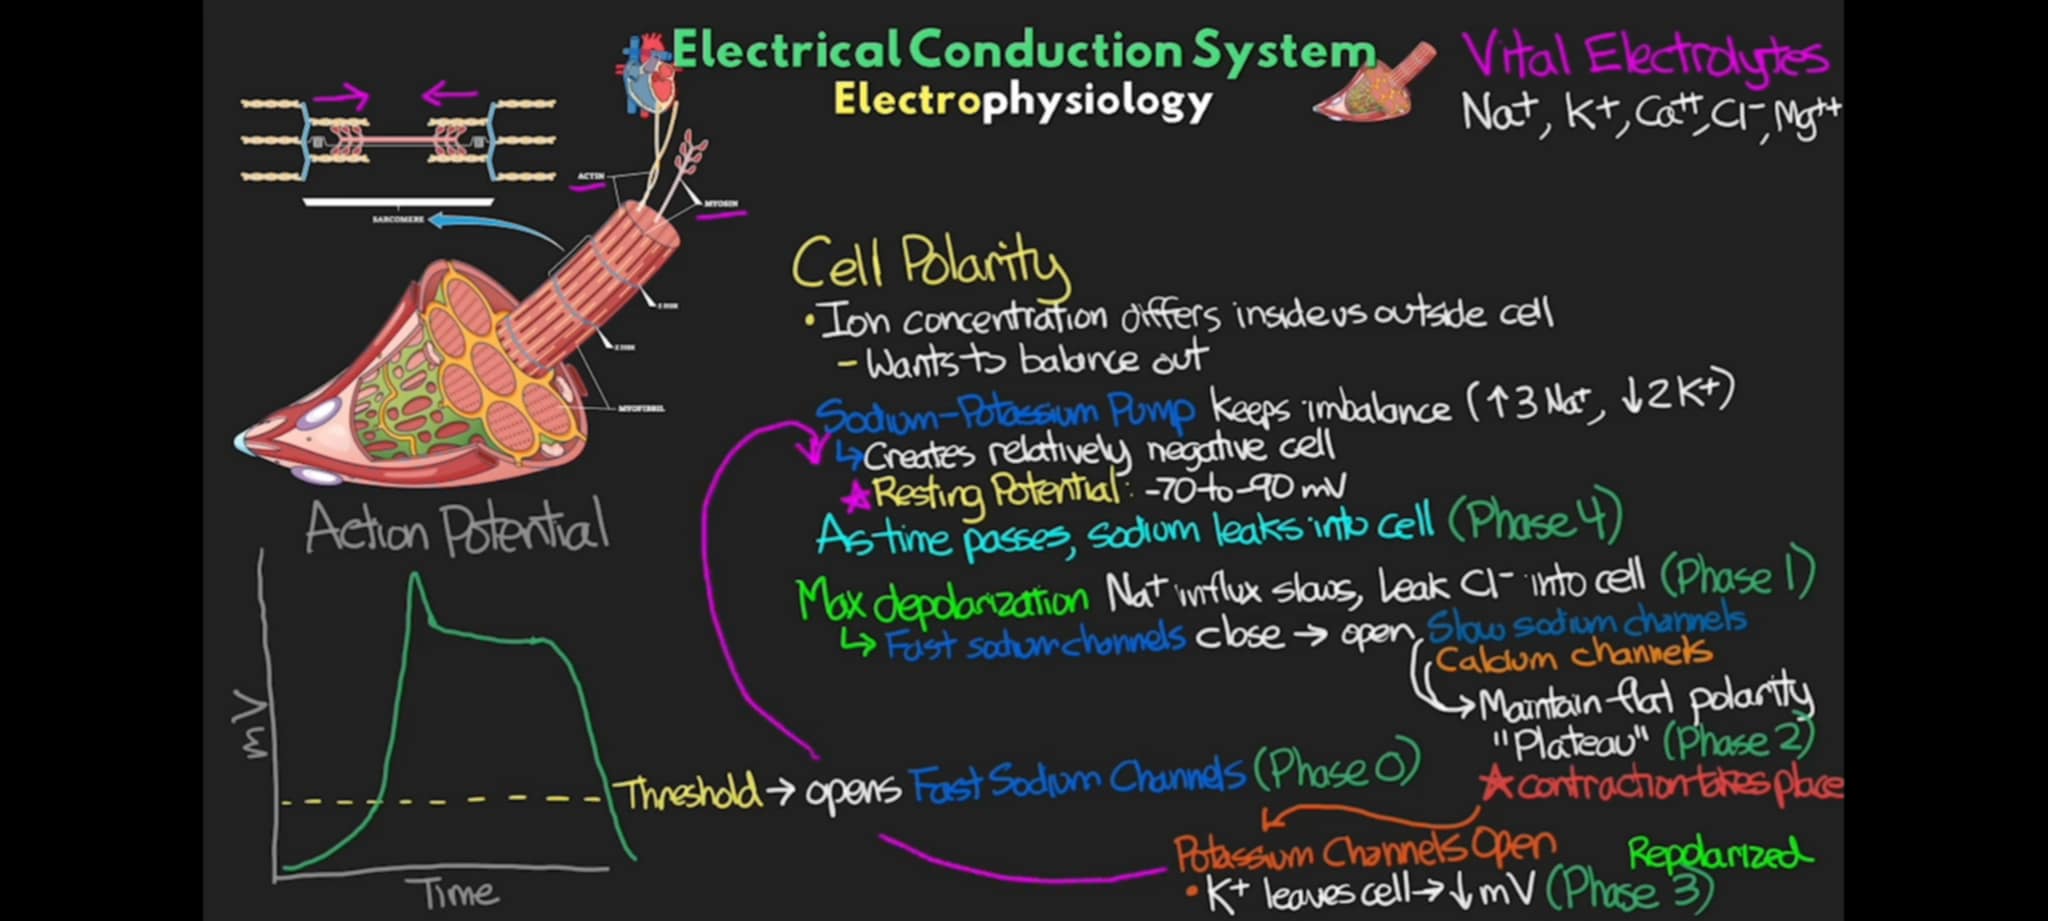 Electrical Conduction System
Electrophysiology
Vital Electrolytes
Na+, K+, Ca++, Cl-, Mg++
ACTIN
MYOSIN
SARCOMERE
Z DISK
Z DISK
MYOFIBRIL
Cell Polarity
• Ion concentration differs inside vs outside cell
- Wants to balance out
Sodium-Potassium Pump keeps imbalance (↑3 Na+, ↓2 K+)
↳ Creates relatively negative cell
★ Resting Potential: -70 to -90 mV
As time passes, sodium leaks into cell (Phase 4)
Max depolarization Na+ influx slows, Leak Cl- into cell (Phase 1)
↳ Fast sodium channels close → open Slow sodium channels
Calcium channels
→ Maintain flat polarity
"Plateau" (Phase 2)
★ contraction takes place
Threshold → opens Fast Sodium Channels (Phase 0)
Potassium Channels Open
Repolarized
• K+ leaves cell → ↓ mV (Phase 3)
Action Potential
mV
Time